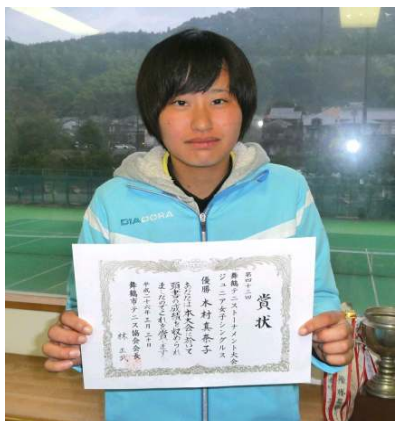 賞状
第四十二回
舞鶴テニストーナメント大会
ジュニア女子シングルス
優勝 木村真奈子
あなたは本大会に於いて
頭書の成績を収められ
ましたのでこれを賞します
平成二十六年三月三十日
舞鶴市テニス協会会長
DIADORA